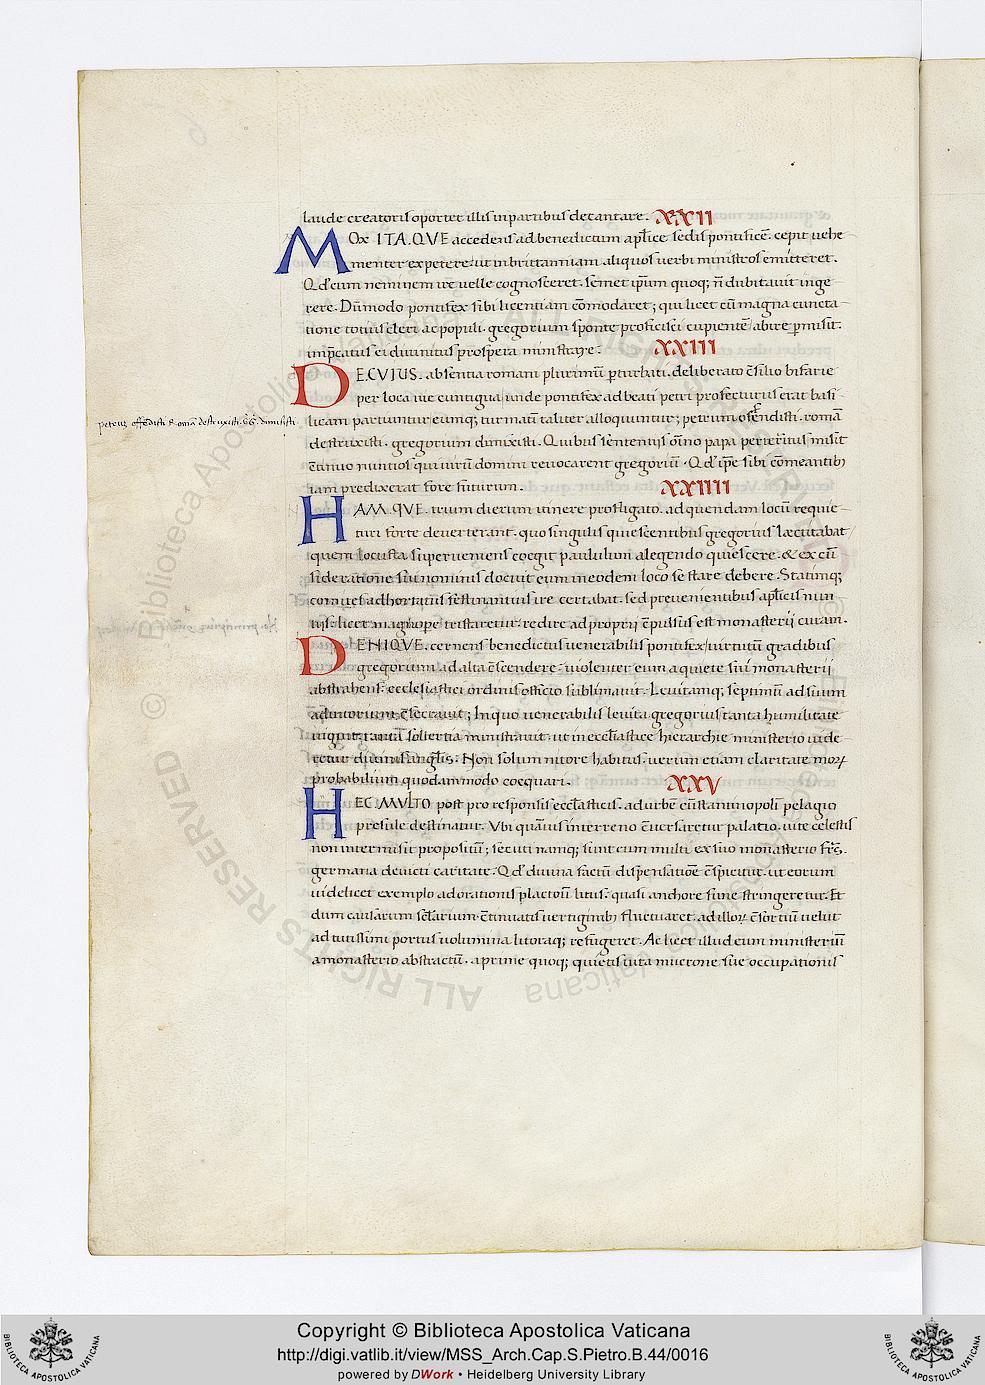 laude creatoris oportet illis in partibus decantare. XXII
MOX ITA.QVE accedens ad benedictum apl̄ice sedis pontificē. cepit uehe
menter expetere. ut in brittanniam aliquos uerbi ministros emitteret.
Q d' eum neminem ire uelle cognosceret. semet ip̄um quoq; n̄ dubitauit inge
rere. Dūmodo pontifex sibi licentiam cōmodaret; qui licet cū magna cuncta
tione totius cleri ac populi. gregorium sponte proficisci cupientē abire p̄misit.
imp̄catus ei diuinitus prospera ministrare. XXIII
DE.CVIUS. absentia romani plurimū p̄turbati. deliberato c̄silio bifarie
per loca uie contigua unde pontifex ad beati petri profecturus erat basi
licam partiuntur eumq; turmatī taliter alloquuntur; petrum offendisti. romā
destruxisti. gregorium dimisisti. Quibus sententiis om̄o papa perteritus misit
c̄tinuo nuntios qui uirū domini reuocarent gregoriū. Q d' ip̄e sibi cōmeantib;
iam predixerat fore futurum. XXIIII
petrus offēdisti Romā destruxisti. Gḡ. dimisisti
HAM.QVE. trium dierum itinere profligato. ad quendam locū requie
turi forte deuerterant. quo singulis quiescentibus gregorius lectitabat
quem locusta superueniens coegit paululum a legendo quiescere. & ex cū
sideratione sui nominis docuit eum in eodem loco se stare debere. Statimq;
comites adhortatus festinantius ire certabat. sed preuenientibus apl̄icis nun
tiis. licet magnopere tristaretur. redire ad proprii c̄pulsus est monasterii curam.
DENIQVE. cernens benedictus uenerabilis pontifex uirtutū gradibus
gregorium ad alta c̄scendere. uiolenter eum a quiete sui monasterii
abstrahens. ecclesiastici ordinis officio sublimauit. Leuitamq; septimū ad suum
adiutorium c̄secrauit; In quo uenerabilis leuita gregorius tanta humilitate
uiguit. tantā sollertia ministrauit. ut in eccl̄iastice hierarchie ministerio uide
retur diuinis angl̄is. Non solum nitore habitus. uerum etiam claritate morꝝ
probabilium quodammodo coequari. XXV
HEC.MVLTO post pro responsis eccl̄asticis. ad urbē c̄stantinopolī pelagio
presule destinatur. Vbi quāuis in terreno c̄uersaretur palatio. uite celestis
non intermisit propositū; secuti namq; sunt eum multi ex suo monasterio frs̄.
germana deuicti caritate. Q d' diuina factū dispensatiōe c̄spicitur. ut eorum
uidelicet exemplo ad orationis placitū litus. quasi anchore fune stringeretur. Et
dum causarum sc̄larium c̄tinuatis uertiginib; fluctuaret. ad illoꝝ c̄sortiū uelut
ad tutissimi portus uolumina litoraq; refugeret. Ac licet illud eum ministeriū
a monasterio abstractū. a prime quoq; quietis uita mucrone sue occupationis
Copyright © Biblioteca Apostolica Vaticana
http://digi.vatlib.it/view/MSS_Arch.Cap.S.Pietro.B.44/0016
powered by DWork • Heidelberg University Library
BIBLIOTECA APOSTOLICA VATICANA
BIBLIOTECA APOSTOLICA VATICANA
© Biblioteca Apostolica Vaticana ALL RIGHTS RESERVED
© Biblioteca Apostolica Vaticana ALL RIGHTS RESERVED